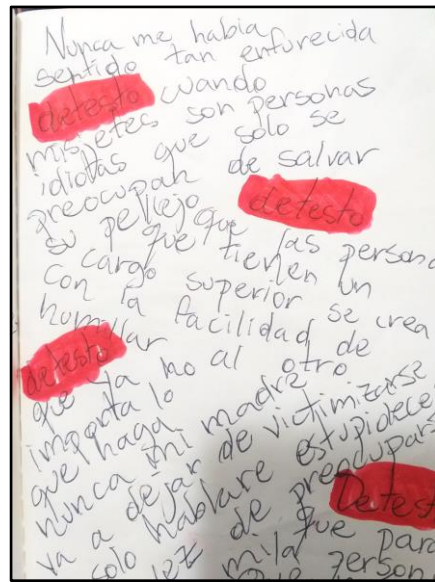 Nunca me habia
sentido tan enfurecida
detesto cuando
mis jefes son personas
idiotas que solo se
preocupan de salvar
su pellejo detesto
que que las persona
con cargo tienen un
superior se crea
con la facilidad de
humillar al otro
detesto
que ya no
importa lo
que haga mi madre
nunca va a dejar de victimizarse
solo hablare estupidece
vez de preocupars
Detest
mila que para
que person